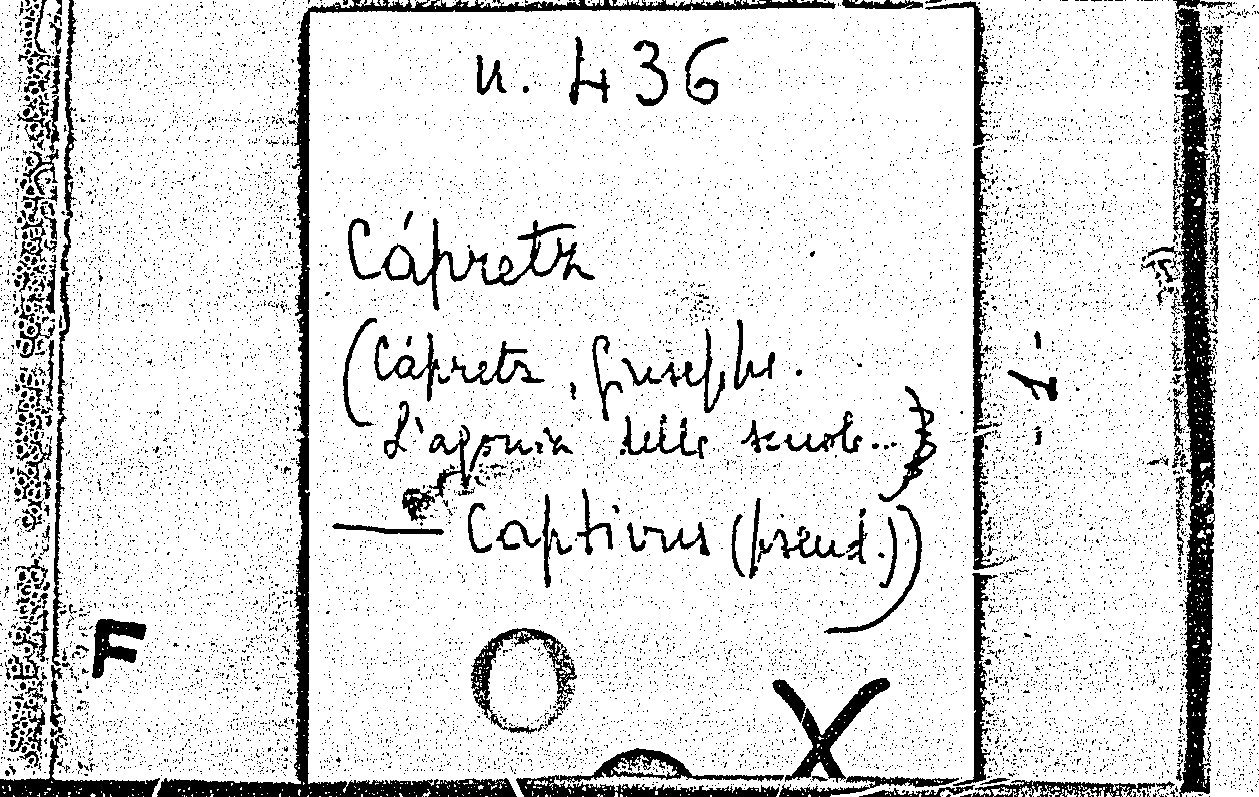 n. 436
Cápretz
(Cápretz, Giuseppe.
L'agonia delle scuole...
— Captivus (pseud.))
F
X
- 1 -